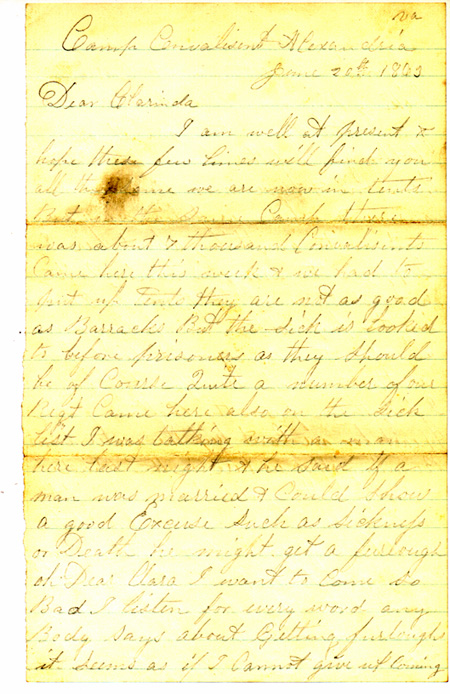 va
Camp Convalisent Alexandria
June 20th 1863
Dear Clarinda
I am well at present &
hope these few lines will find you
all the same we are now in tents
But in the same Camp there
was about 7 thousand Convalisents
Came here this week & we had to
put up Tents they are not as good
as Barracks But the sick is looked
to before prisoners as they should
be of Course Quite a number of our
Regt Came here also on the sick
list I was talking with a man
here last night & he said if a
man was married & Could show
a good Excuse such as sickness
or Death he might get a furlough
oh Dear Clara I want to Come so
Bad I listen for every word any
Body says about Getting furloughs
it seems as if I Cannot give up Coming